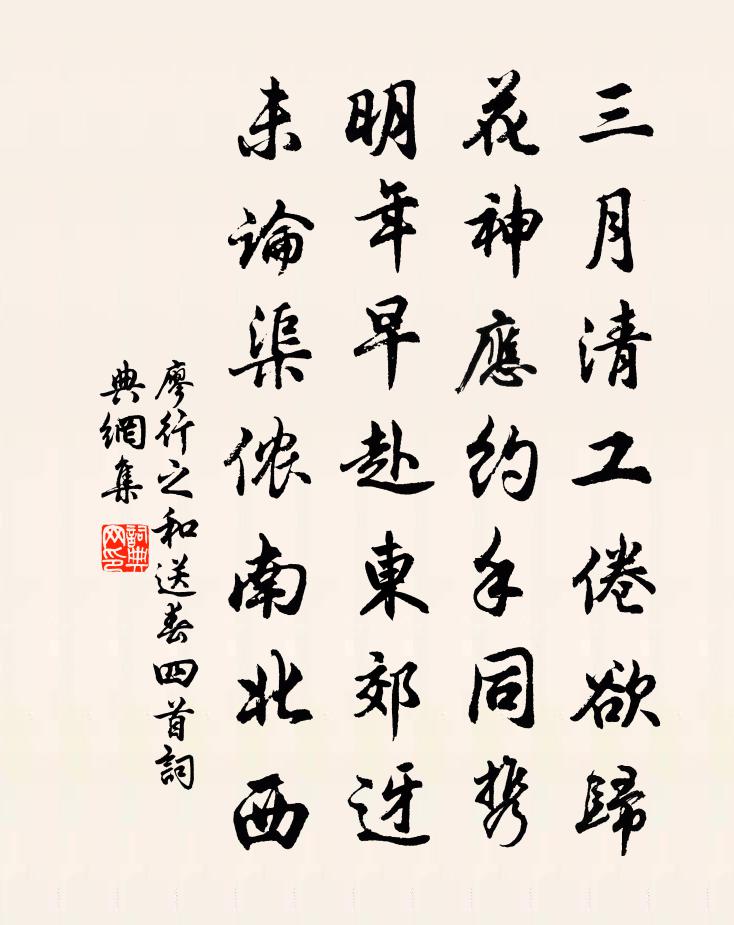 三月清工倦欲歸
花神應約手同携
明年早赴東郊迓
未論渠儂南北西
廖行之和送春四首詞
典網集
詞典
网印